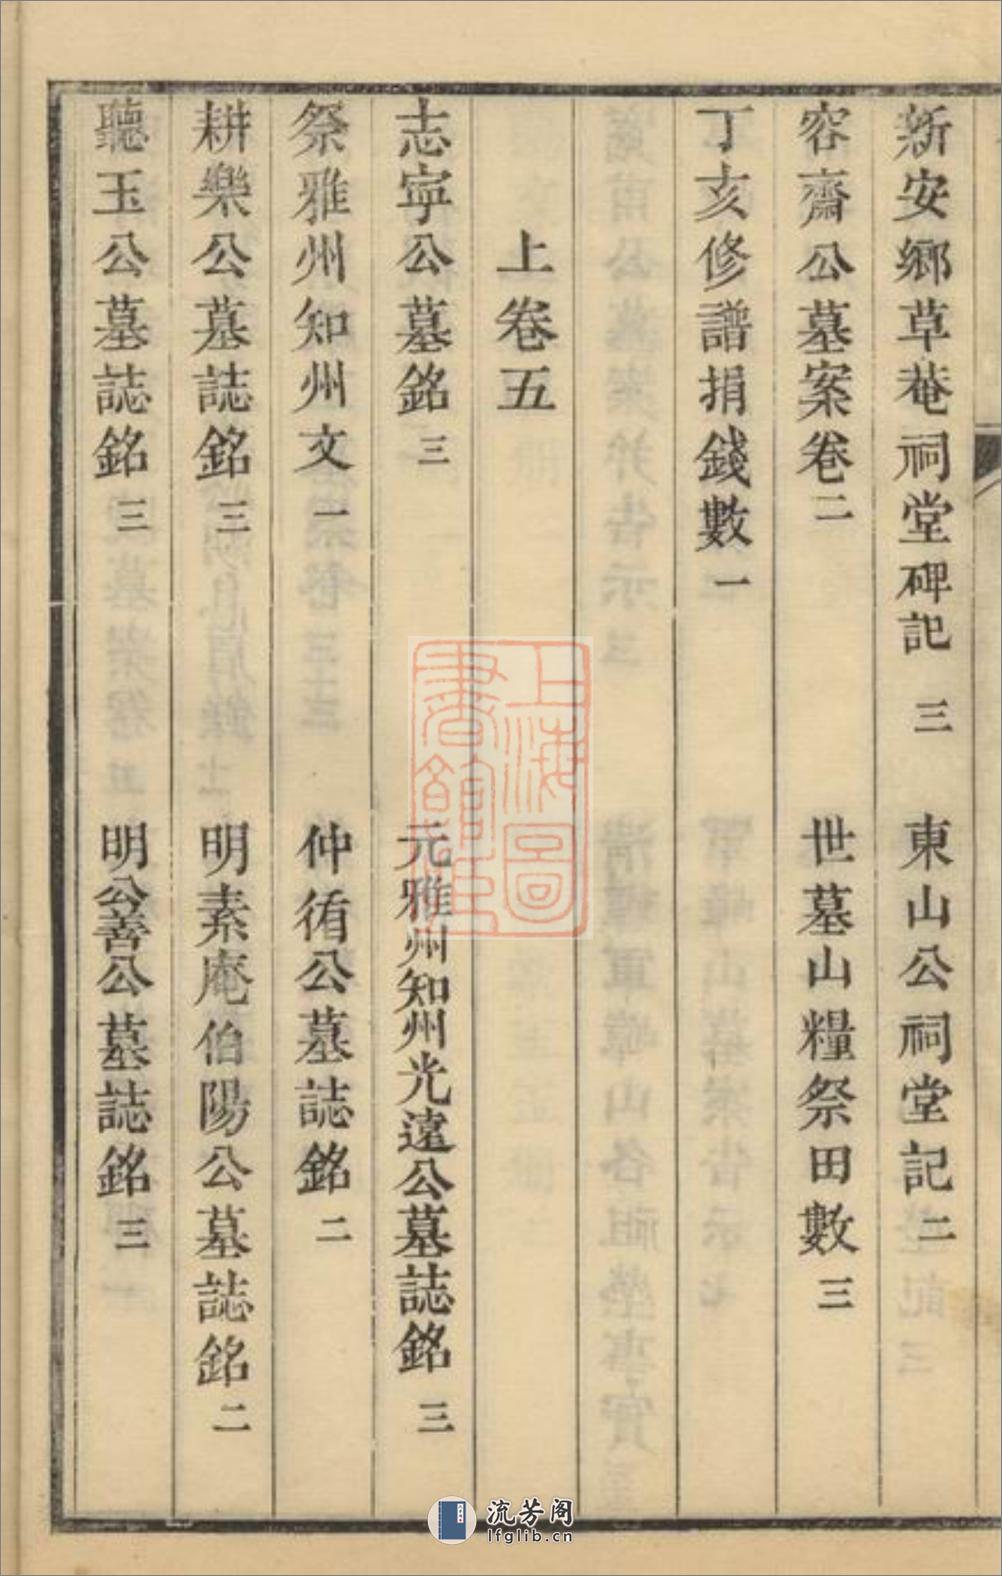 新安鄉草菴祠堂碑記 三　東山公祠堂記 二
容齋公墓案卷 二　世墓山糧祭田數 三
丁亥修譜捐錢數 一
上卷五
志寧公墓銘 三　元雅州知州光遠公墓誌銘 三
祭雅州知州文 一　仲脩公墓誌銘 二
耕樂公墓誌銘 三　明素庵伯陽公墓誌銘 二
聽玉公墓誌銘 三　明公善公墓誌銘 三
上海圖書館藏
流芳阁
lfglib.cn